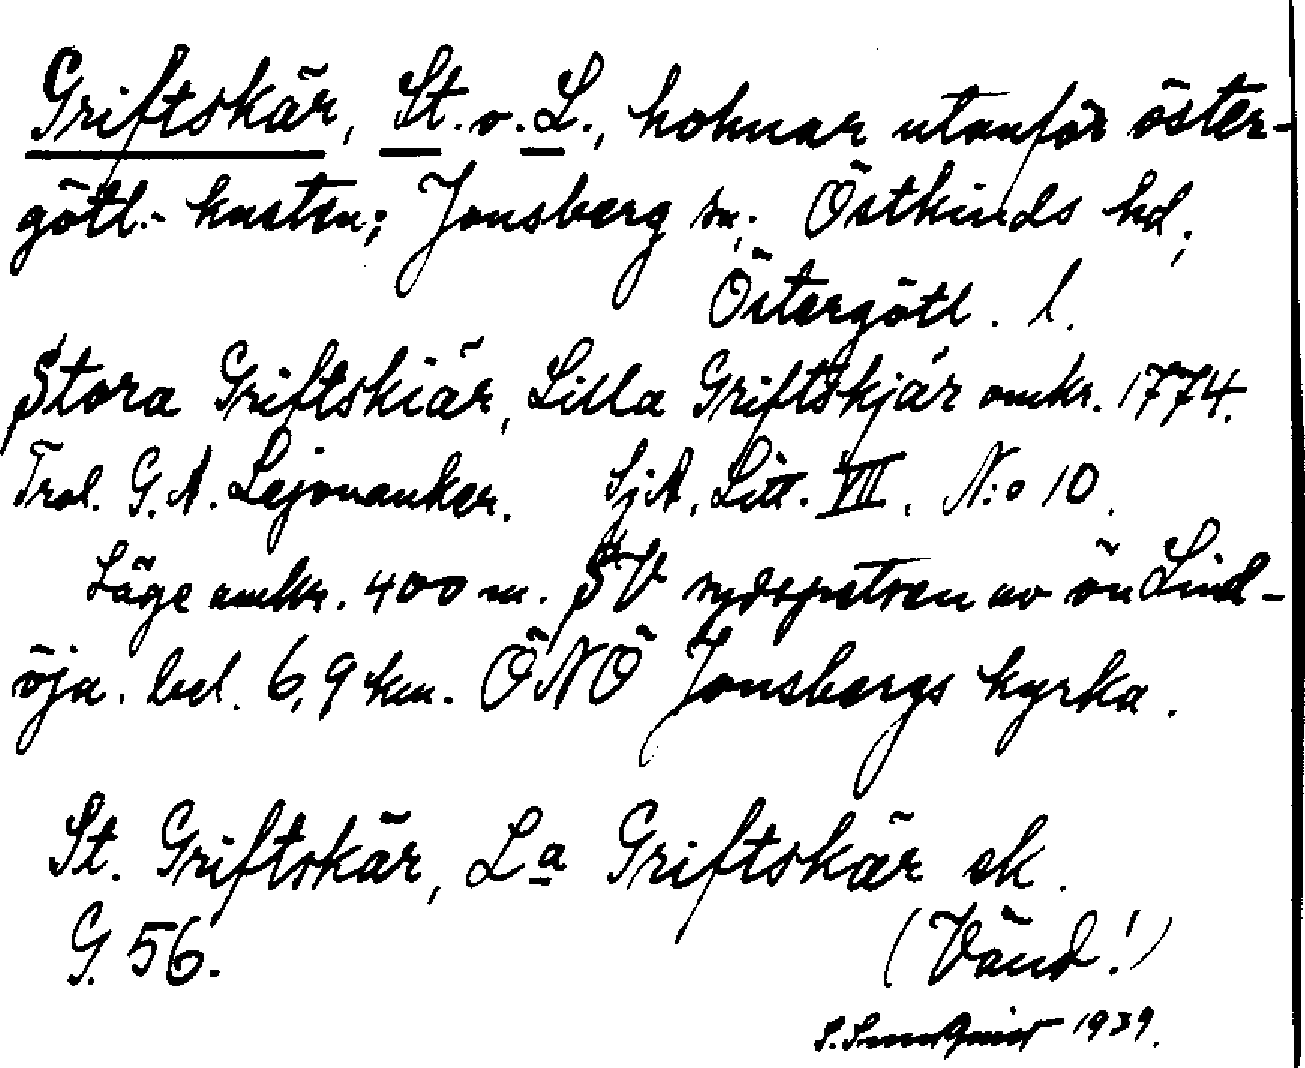 Griftskär, St. o. L., holmar utanför öster-
götl.- kusten; Jonsberg sn; Östkinds hd;
Östergötl. l.
Stora Griftskiär, Lilla Griftskjär omkr. 1774.
Trol. G. A. Lejonanker. SjA, Litt. VII. N:o 10.
Läge omkr. 400 m. SV sydspetsen av ön Lind-
öja. bel. 6,9 km. ÖNÖ Jonsbergs kyrka.
St. Griftskär, La Griftskär ek.
G. 56.
(Vänd!)
S. 1939.